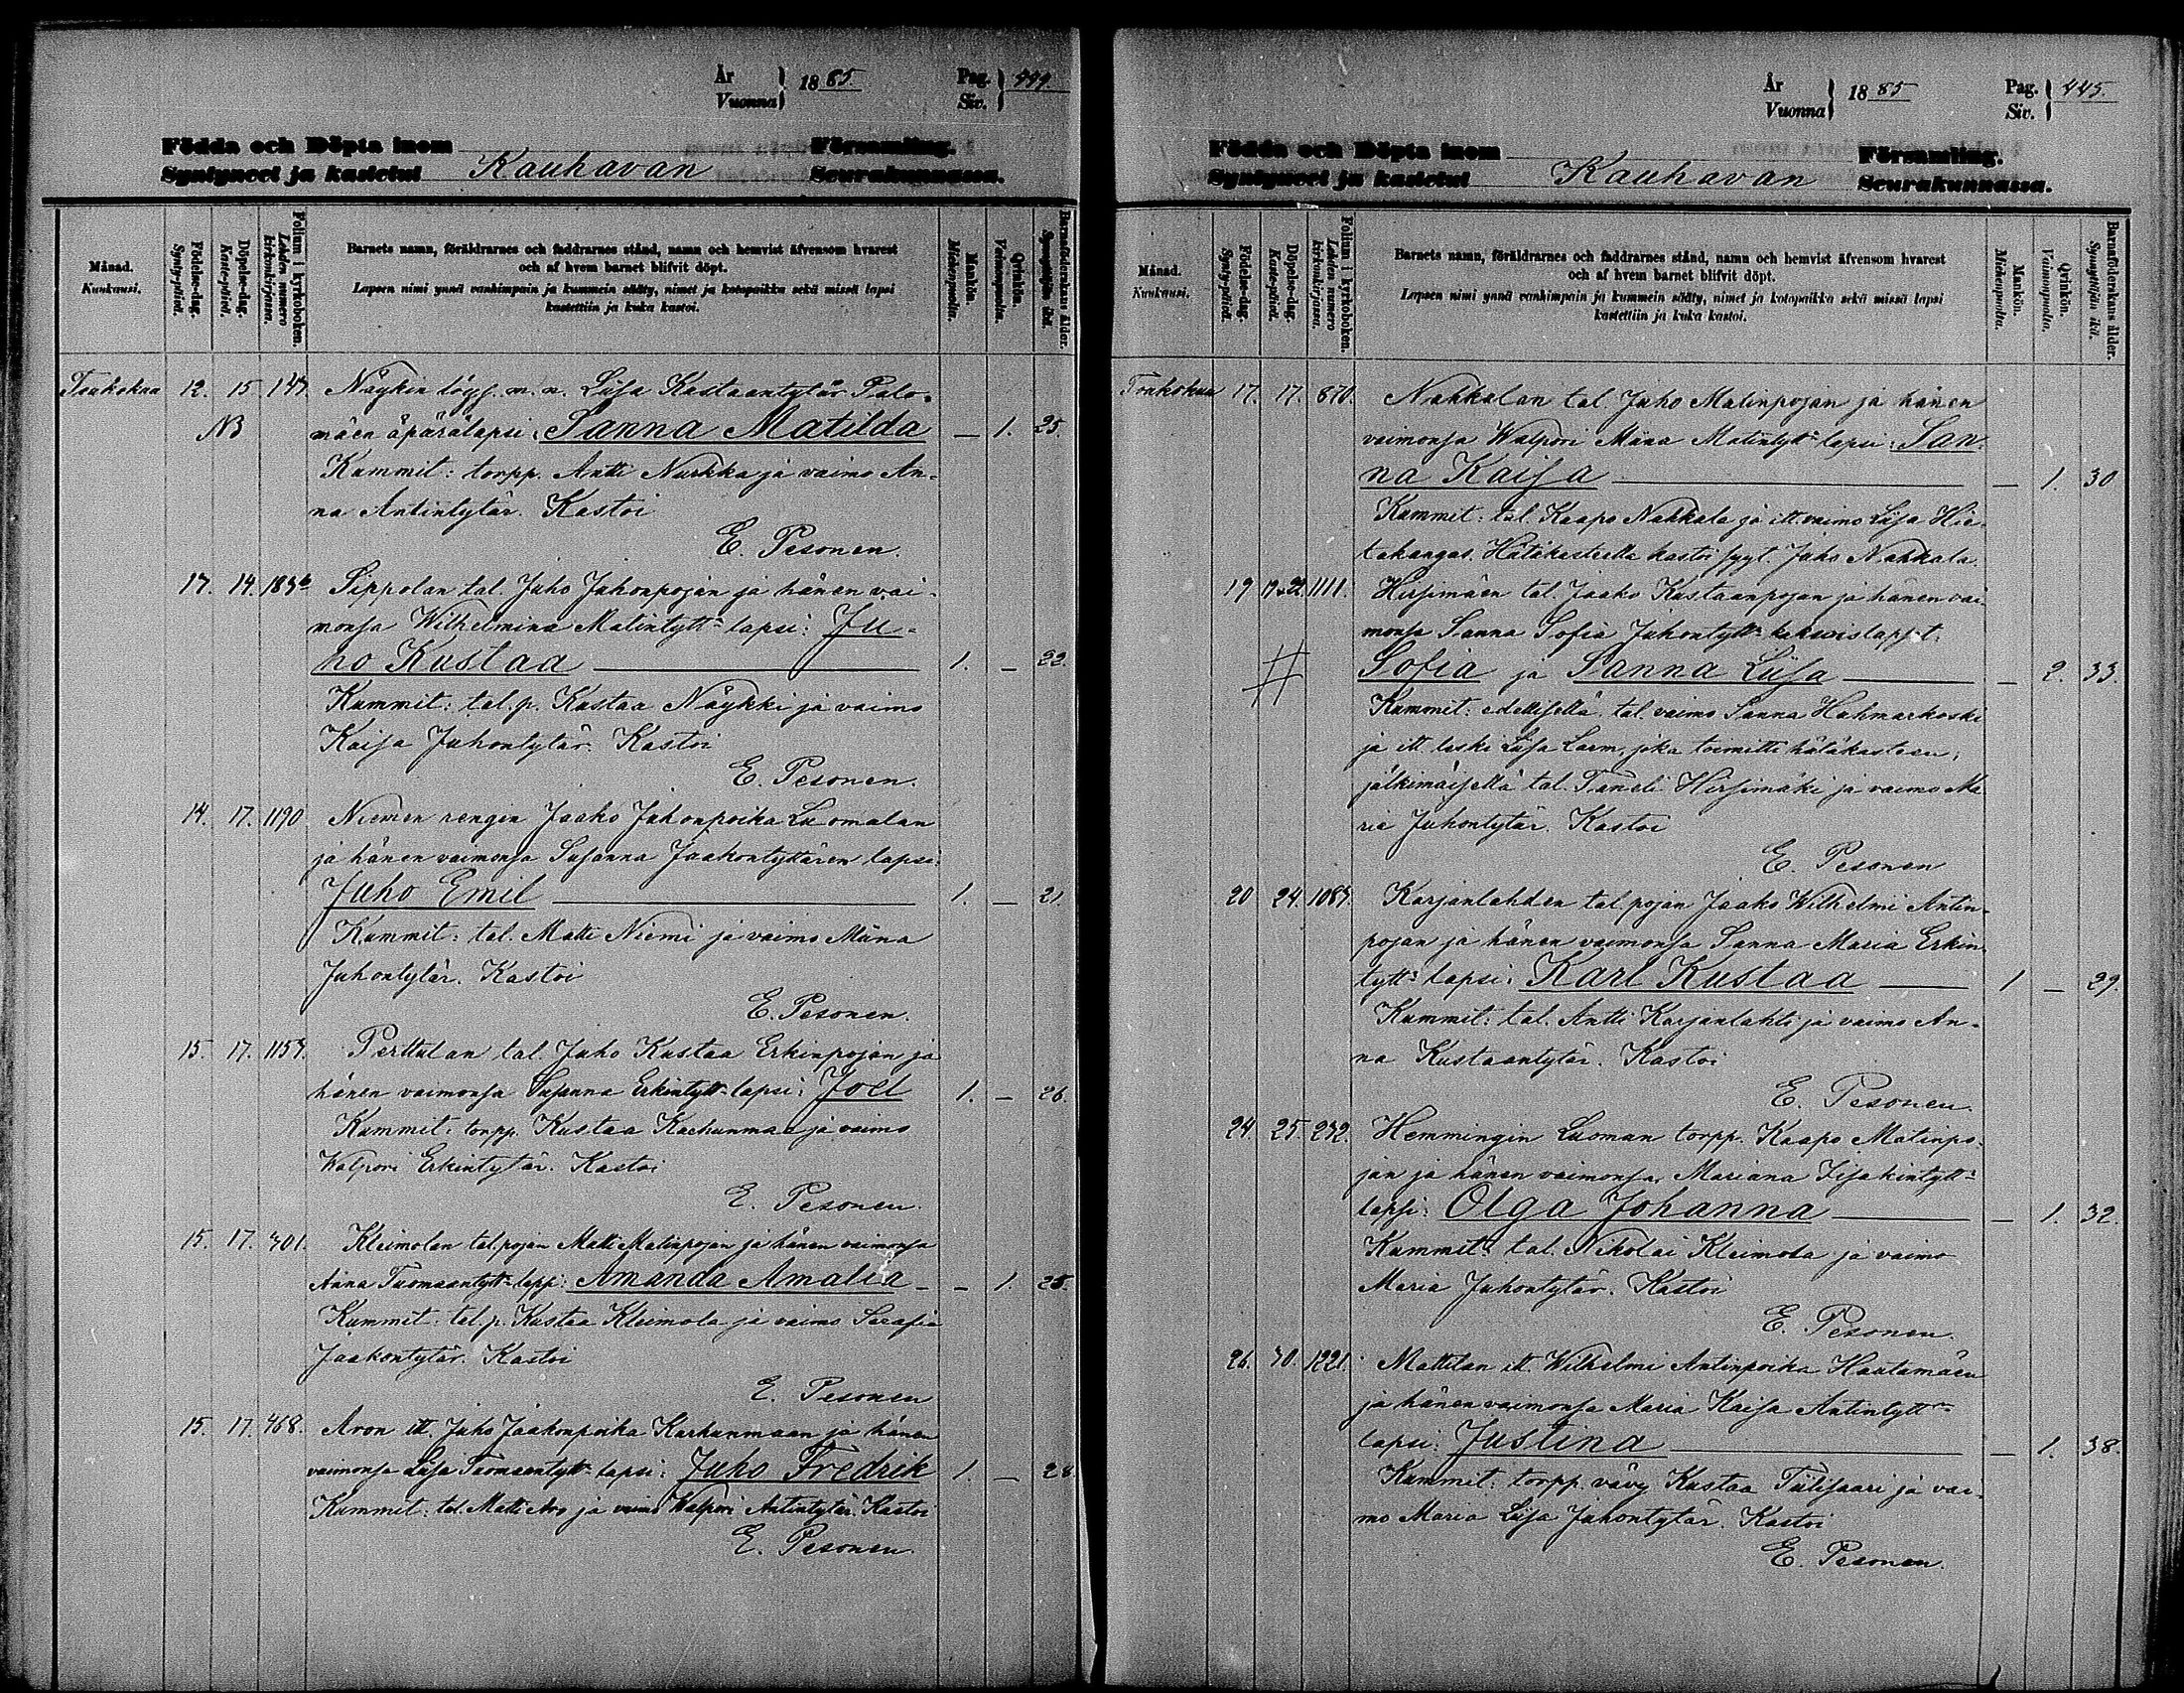 År
Vuonna
1885.
Pag.
Siv.
444.
Födda och Döpta inom
Syntyneet ja kastetut
Kauhavan
Församling.
Seurakunnassa.
Månad.
Kuukausi.
Födelse-dag.
Synty-päivä.
Döpelse-dag.
Kaste-päivä.
Folium i kyrkoboken.
Lehden numero
kirkonkirjassa.
Barnets namn, föräldrarnes och faddrarnes stånd, namn och hemvist äfvensom hvarest
och af hvem barnet blifvit döpt.
Lapsen nimi ynnä vanhimpain ja kummein sääty, nimet ja kotopaikka sekä missä lapsi
kastettiin ja kuka kastoi.
Mankön.
Miehenpuolia.
Qvinkön.
Vaimonpuolia.
Barnaföderskans ålder.
Synnyttäjän ikä.
Toukokuu 12. 15. 147. Näykin m. n. Liisa Kustaantytär Palo-
NB mäen äpärälapsi: Sanna Matilda — 1. 25.
Kummit: torpp. Antti Nurkka ja vaimo An-
na Antintytär. Kastoi
E. Pesonen.
14. Sippolan tal. Juho Juhonpojan ja hänen vai-
monsa Wilhelmina Matintytt. lapsi: Ju-
ho Kustaa 1. — 22.
Kummit: tal. p. Kustaa Näykki ja vaimo
Kaisa Juhontytär. Kastoi
E. Pesonen.
14. 17. 1190 Niemen rengin Jaako Juhonpoika Luomalan
ja hänen vaimonsa Susanna Jaakontyttären lapsi:
Juho Emil 1. — 21.
Kummit: tal. Matti Niemi ja vaimo Miina
Juhontytär. Kastoi
E. Pesonen.
15. 17. 1157. Perttulan tal. Juho Kustaa Erkinpojan ja
hänen vaimonsa Susanna Erkintytt. lapsi: Joel 1. — 26.
Kummit: torpp. Kustaa Karhunmaa ja vaimo
Walpori Erkintytär. Kastoi
E. Pesonen.
15. 17. 401. Kleimolan tal. pojan Matti Matinpojan ja hänen vaimonsa
Anna Tuomaantytt. laps: Amanda Amalia — 1. 25.
Kummit: tal. p. Kustaa Kleimola ja vaimo Serafia
Jaakontytär. Kastoi
E. Pesonen
15. 17. 468. Aron itt. Juho Jaakonpoika Karhunmaan ja hänen
vaimonsa Liisa Tuomaantytt. lapsi: Juho Fredrik 1. — 28.
Kummit: tal. Matti Aro ja vaimo Walpori Antintytär. Kastoi
E. Pesonen.
År
Vuonna
1885
Pag.
Siv.
445.
Födda och Döpta inom
Syntyneet ja kastetut
Kauhavan
Församling.
Seurakunnassa.
Månad.
Kuukausi.
Födelse-dag.
Synty-päivä.
Döpelse-dag.
Kaste-päivä.
Folium i kyrkoboken.
Lehden numero
kirkonkirjassa.
Barnets namn, föräldrarnes och faddrarnes stånd, namn och hemvist äfvensom hvarest
och af hvem barnet blifvit döpt.
Lapsen nimi ynnä vanhimpain ja kummein sääty, nimet ja kotopaikka sekä missä lapsi
kastettiin ja kuka kastoi.
Mankön.
Miehenpuolia.
Qvinkön.
Vaimonpuolia.
Barnaföderskans ålder.
Synnyttäjän ikä.
Toukokuu 17. 17. 870. Nahkalan tal. Juho Matinpojan ja hänen
vaimonsa Walpori Miina Matintytt. lapsi: San-
na Kaisa — 1. 30
Kummit: tal. Kaapo Nahkala ja itt. vaimo Liisa Hie-
takangas. Hätäkasteella kastoi Juho Nahkala.
19 1111. Hirsimäen tal. Jaako Kustaanpojan ja hänen vai-
monsa Sanna Sofia Juhontytt. kaksoislapset:
Sofia ja Sanna Liisa — 2. 33.
Kummit: edellisellä tal. vaimo Sanna Hahmarkoski
ja itt. leski Liisa Larm, joka toimitti hätäkasteen;
jälkimäisellä tal. Taneli Hirsimäki ja vaimo Ma-
ria Juhontytär. Kastoi
E. Pesonen
20 24. 1087. Karjanlahden tal. pojan Jaako Wilhelmi Antin-
pojan ja hänen vaimonsa Sanna Maria Erkin-
tytt. lapsi: Karl Kustaa 1 — 29.
Kummit: tal. Antti Karjanlahti ja vaimo An-
na Kustaantytär. Kastoi
E. Pesonen.
24. 25. 232. Hemmingin Luoman torpp. Kaapo Matinpo-
jan ja hänen vaimonsa Mariana Iisakintytt.
lapsi: Olga Johanna — 1. 32.
Kummit: tal. Nikolai Kleimola ja vaimo
Maria Juhontytär. Kastoi
E. Pesonen.
26. 30. 1221. Mattilan itt. Wilhelmi Antinpoika Hautamäen
ja hänen vaimonsa Maria Kaisa Antintytt.
lapsi: Justina — 1. 38.
Kummit: torpp. vävy Kustaa Tiilisaari ja vai-
mo Maria Liisa Juhontytär. Kastoi
E. Pesonen.